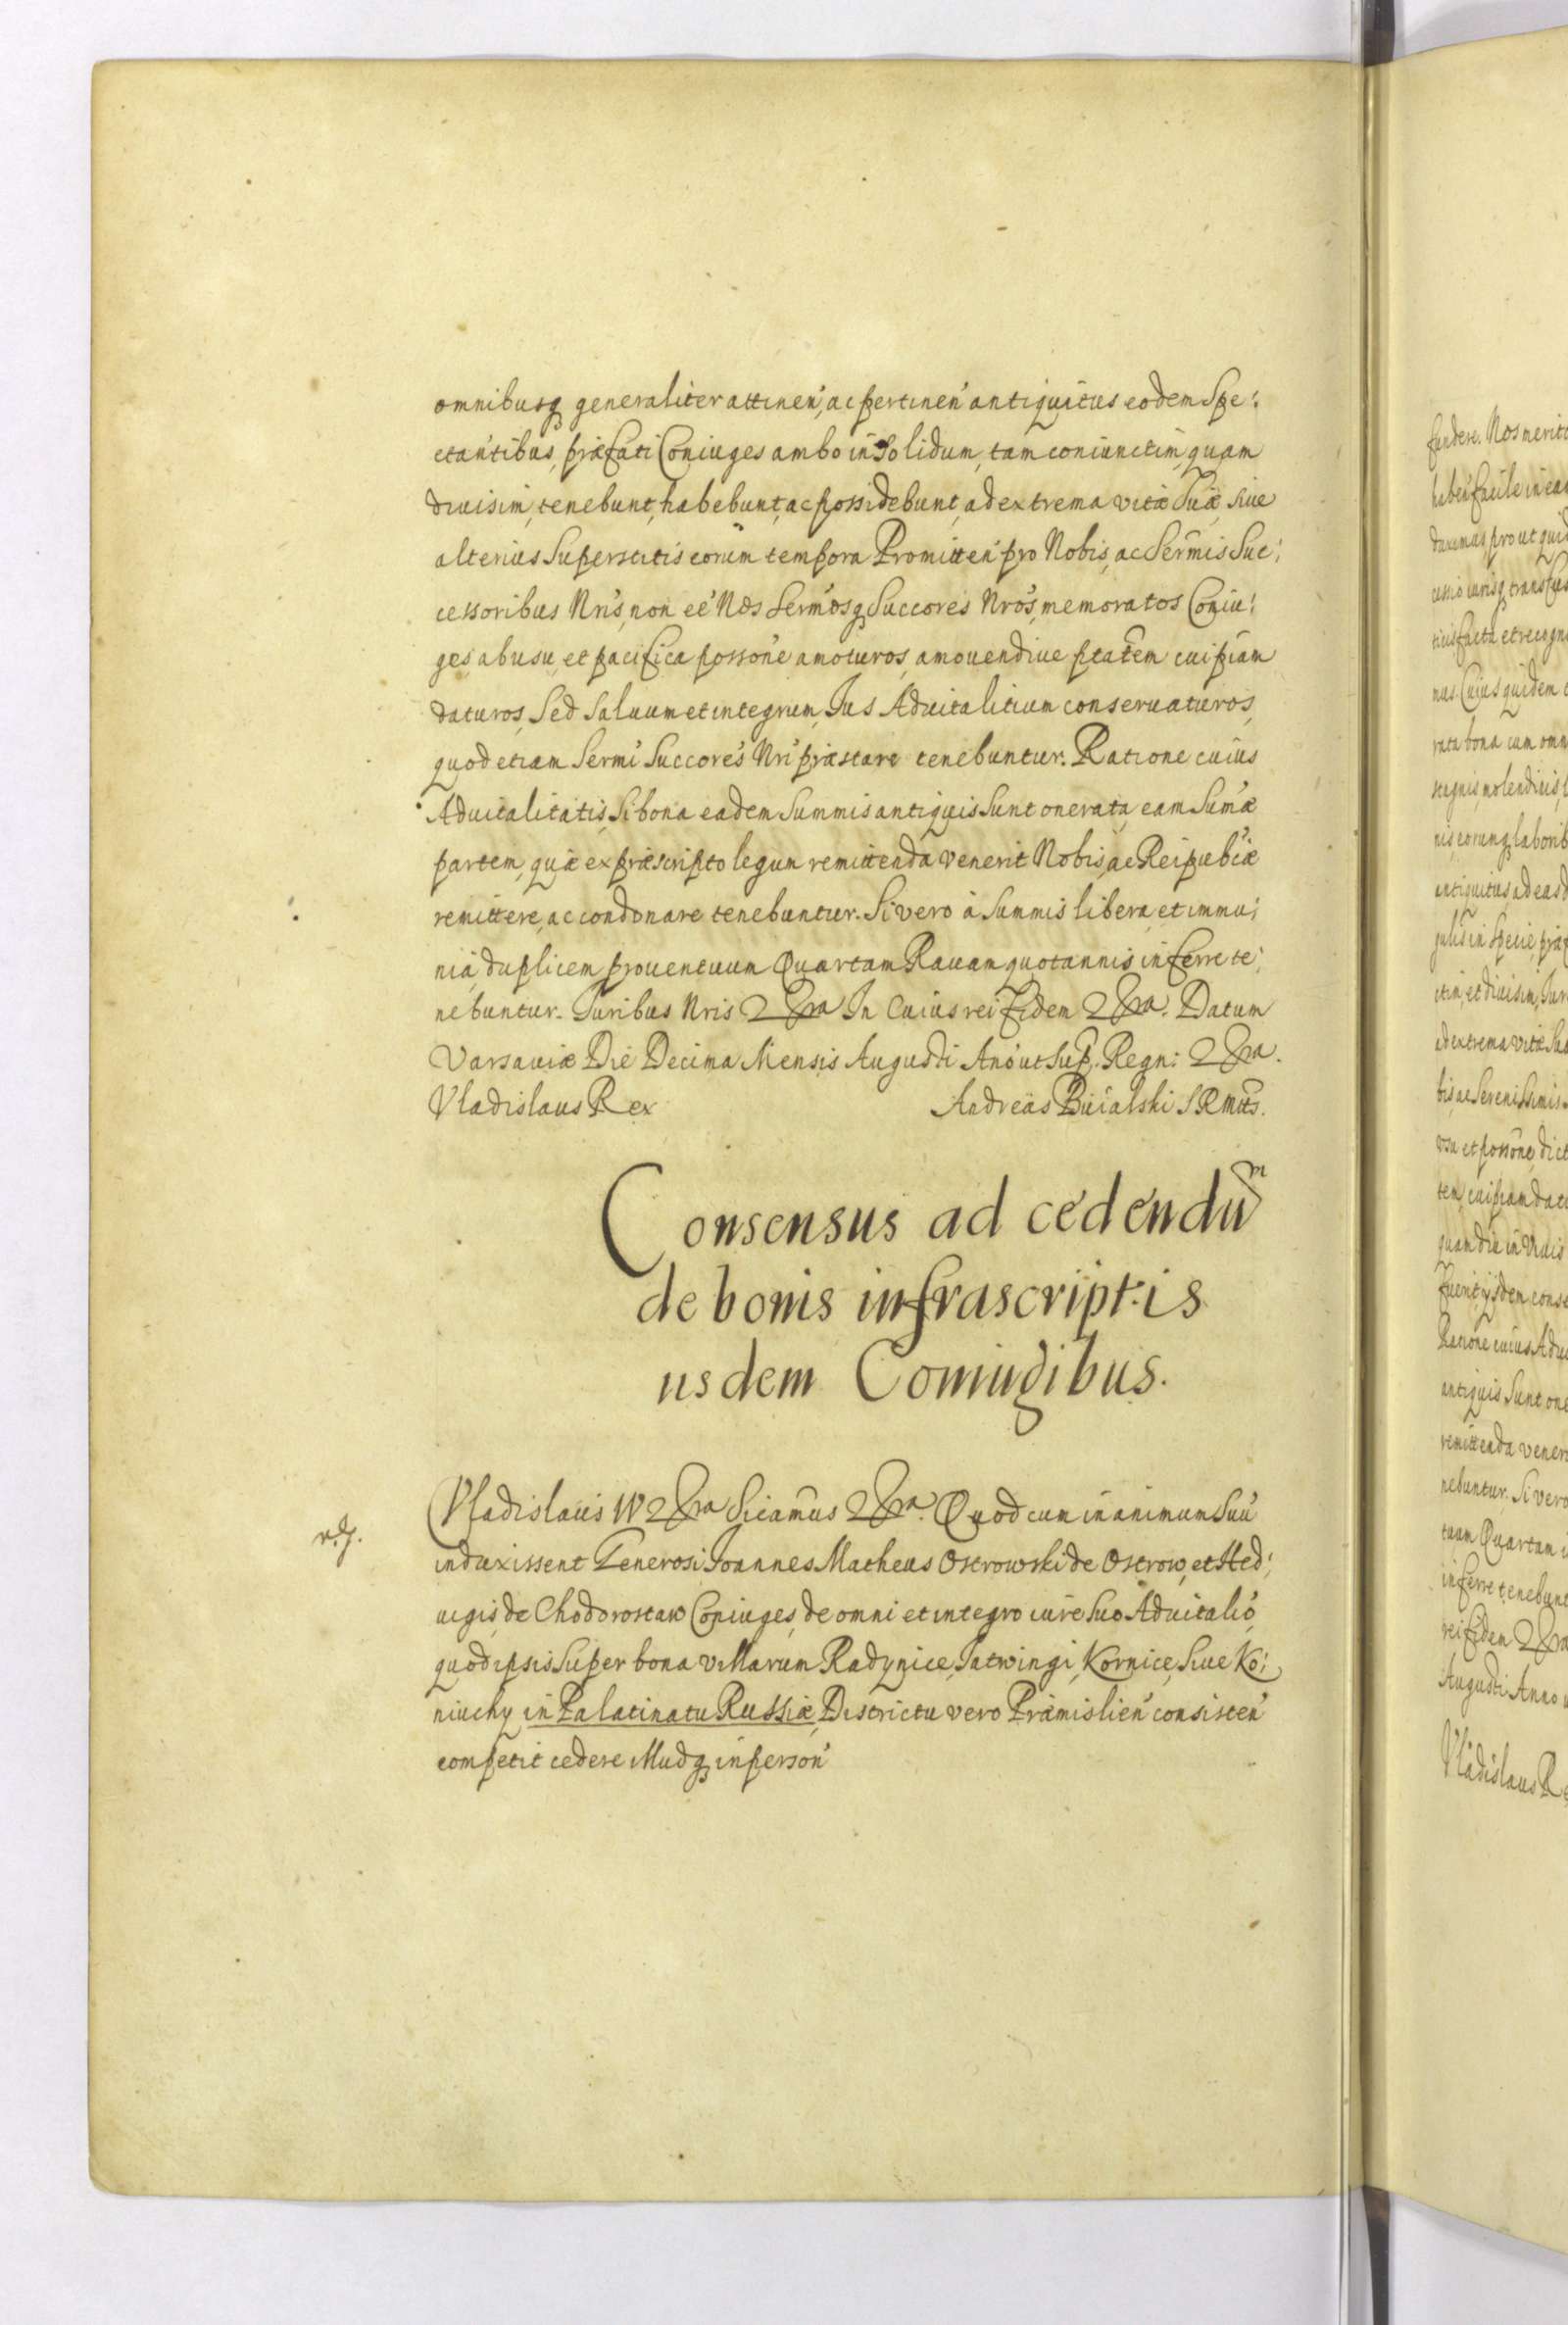 omnibusq generaliter attinen', ac pertinen' antiquitus eodem Spe:
ctantibus, præfati Coniuges ambo in Solidum, tam coniunctim, quam
diuisim, tenebunt, habebunt, ac possidebunt, ad extrema vitæ Suæ, Siue
alterius Superstitis eorum tempora Promitten' pro Nobis, ac Sermis Suc:
cessoribus Nris, non eé Nos Sermosq Succores Nros, memoratos Coniu:
ges, ab usu, et pacifica possone amoturos, amouendiue ptatem cuipiam
daturos, Sed Saluum et integrum, Ius Aduitalitium conseruaturos,
quod etiam Sermi Succores Nri præstare tenebuntur. Ratione cuius
Aduitalitatis, Si bona eadem Summis antiquis Sunt onerata, eam Sumæ
partem, quæ ex præscripto legum remittenda venerit Nobis, ac Reipubcæ
remittere, ac condonare tenebuntur. Si vero à Summis libera, et immu:
nia, duplicem prouentuum Quartam Rauam quotannis inferre te:
nebuntur. Iuribus Nris In Cuius rei fidem Datum
Varsauiæ Die Decima Mensis Augusti Ano ut Sup. Regn:
Vladislaus Rex Andreas
Consensus ad cedendum
de bonis infrascriptis
iisdem Coniugibus.
Vladislaus IV Sicamus Quod cum in animum Suu
induxissent Generosi Ioannes Matheus Ostrowski de Ostrow, et Hed:
uigis de Chodorostaw Coniuges, de omni et integro iure Suo Aduitalio,
quod ipsis Super bona villarum Radynice, Jatwingi, Kornice, Siue Ko:
niuchy in Palatinatu Russiæ, Districtu vero Præmislien' consisten'
competit cedere illudq in person'
fundere. Nos merito
haben' facile in ea
duximus prout qui
nus Cuius quidem
rata bona cum omn
stagnis, molendinis,
nis, eorumq laborib
antiquitus ad eas
ctim, et diuisim, Iur
ad extrema vitæ Suæ
bis, ac Serenissimis
usu et possone, dict
tem, cuipiam datu
quamdiu in viuis
fuerit, ijsdem conse
Ratione cuius Adui
antiquis Sunt one
remittenda vener
nebuntur. Si vero
tuum Quartam
inferre tenebunt
rei fidem
Augusti Anno
Vladislaus Re